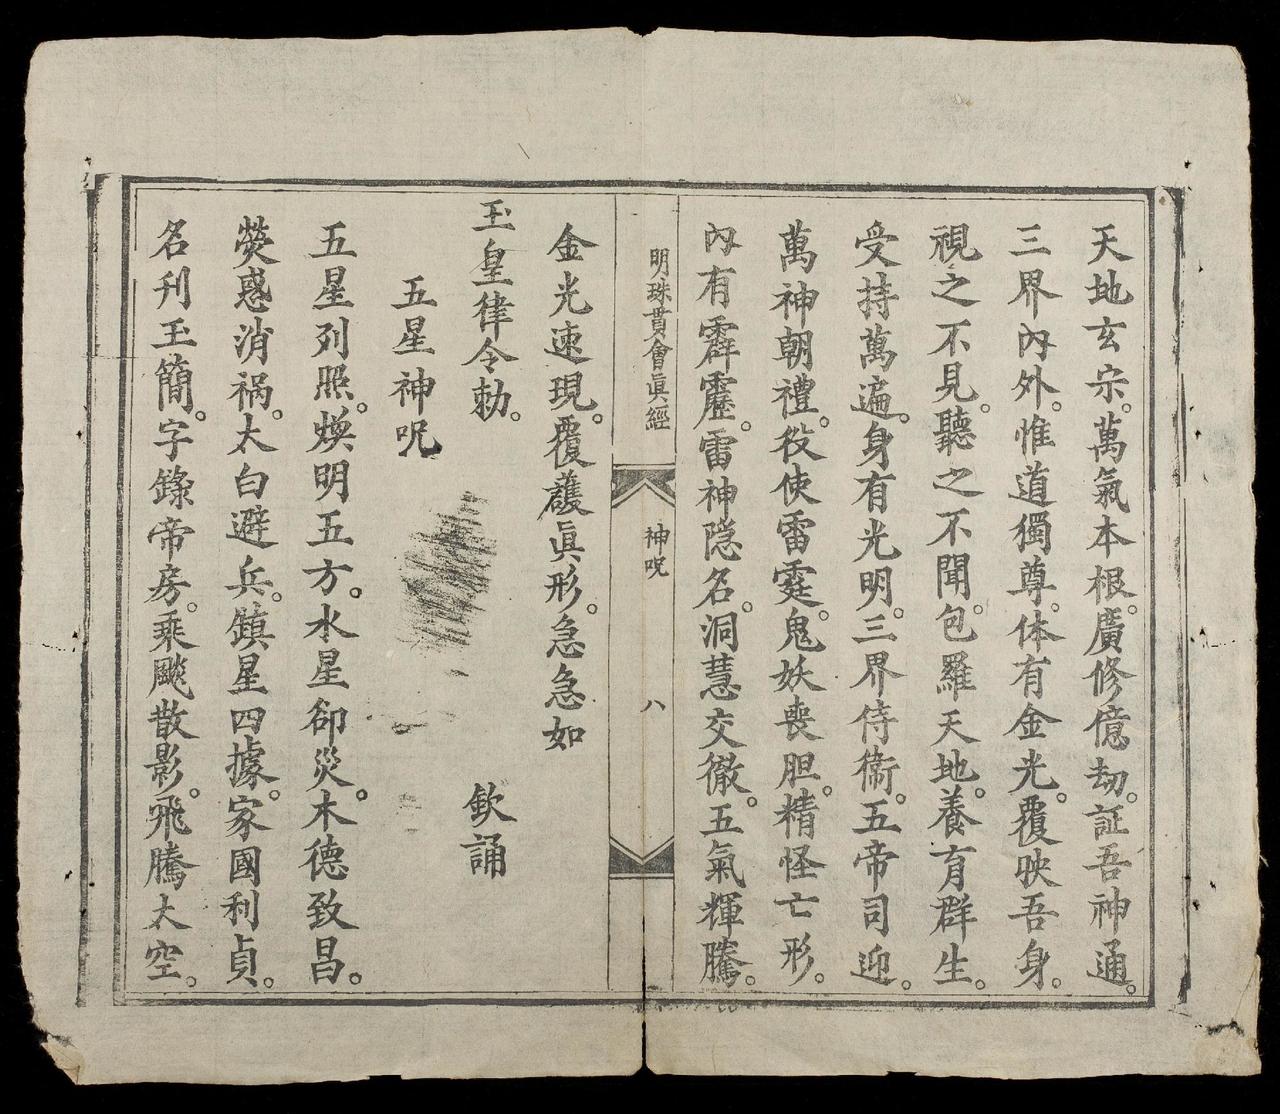 天地玄宗。萬氣本根。廣修億劫。証吾神通。
三界內外。惟道獨尊。体有金光。覆映吾身。
視之不見。聽之不聞。包羅天地。養育群生。
受持萬遍。身有光明。三界侍衛。五帝司迎。
萬神朝禮。役使雷霆。鬼妖喪胆。精怪亡形。
內有霹靂。雷神隱名。洞慧交徹。五氣輝騰。
明珠貫會眞經 神呪 八
金光速現。覆護眞形。急急如
玉皇律令勅。 欽誦
五星神呪
五星列照。煥明五方。水星卻災。木德致昌。
熒惑消禍。太白避兵。鎮星四據。家國利貞。
名刊玉簡。字錄帝房。乘飈散影。飛騰太空。